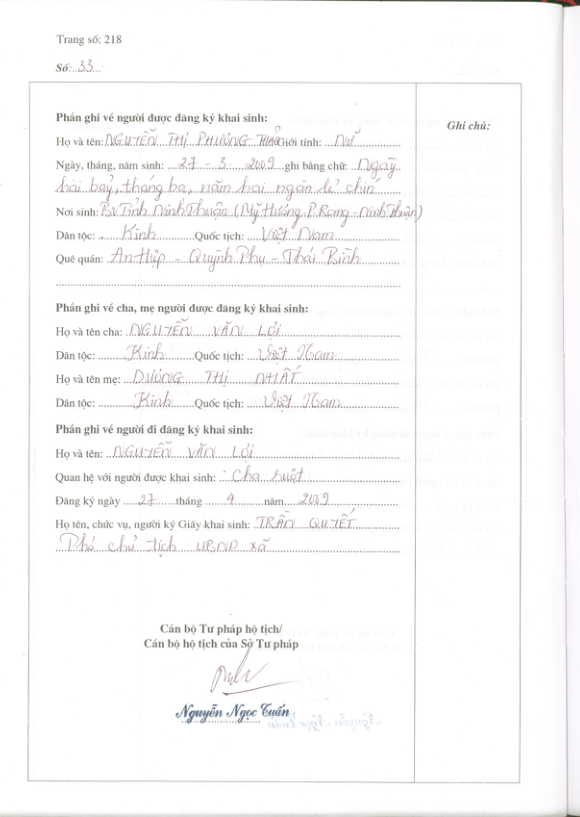 Trang số: 218
Số: 33
Phần ghi về người được đăng ký khai sinh:
Ghi chú:
Họ và tên: NGUYỄN THỊ PHƯƠNG THẢO Giới tính: Nữ
Ngày, tháng, năm sinh: 27 - 3 - 2009 ghi bằng chữ: Ngày
hai bảy, tháng ba, năm hai ngàn lẻ chín
Nơi sinh: Bv Tỉnh Ninh Thuận (Mỹ Hương P. Rang - Ninh Thuận)
Dân tộc: Kinh Quốc tịch: Việt Nam
Quê quán: An Hiệp - Quỳnh Phụ - Thái Bình
Phần ghi về cha, mẹ người được đăng ký khai sinh:
Họ và tên cha: NGUYỄN VĂN LỢI
Dân tộc: Kinh Quốc tịch: Việt Nam
Họ và tên mẹ: DƯƠNG THỊ NHẤT
Dân tộc: Kinh Quốc tịch: Việt Nam
Phần ghi về người đi đăng ký khai sinh:
Họ và tên: NGUYỄN VĂN LỢI
Quan hệ với người được khai sinh: Cha ruột
Đăng ký ngày 27 tháng 4 năm 2009
Họ tên, chức vụ, người ký Giấy khai sinh: TRẦN QUYẾT
Phó chủ tịch UBND xã
Cán bộ Tư pháp hộ tịch/
Cán bộ hộ tịch của Sở Tư pháp
Nguyễn Ngọc Tuấn